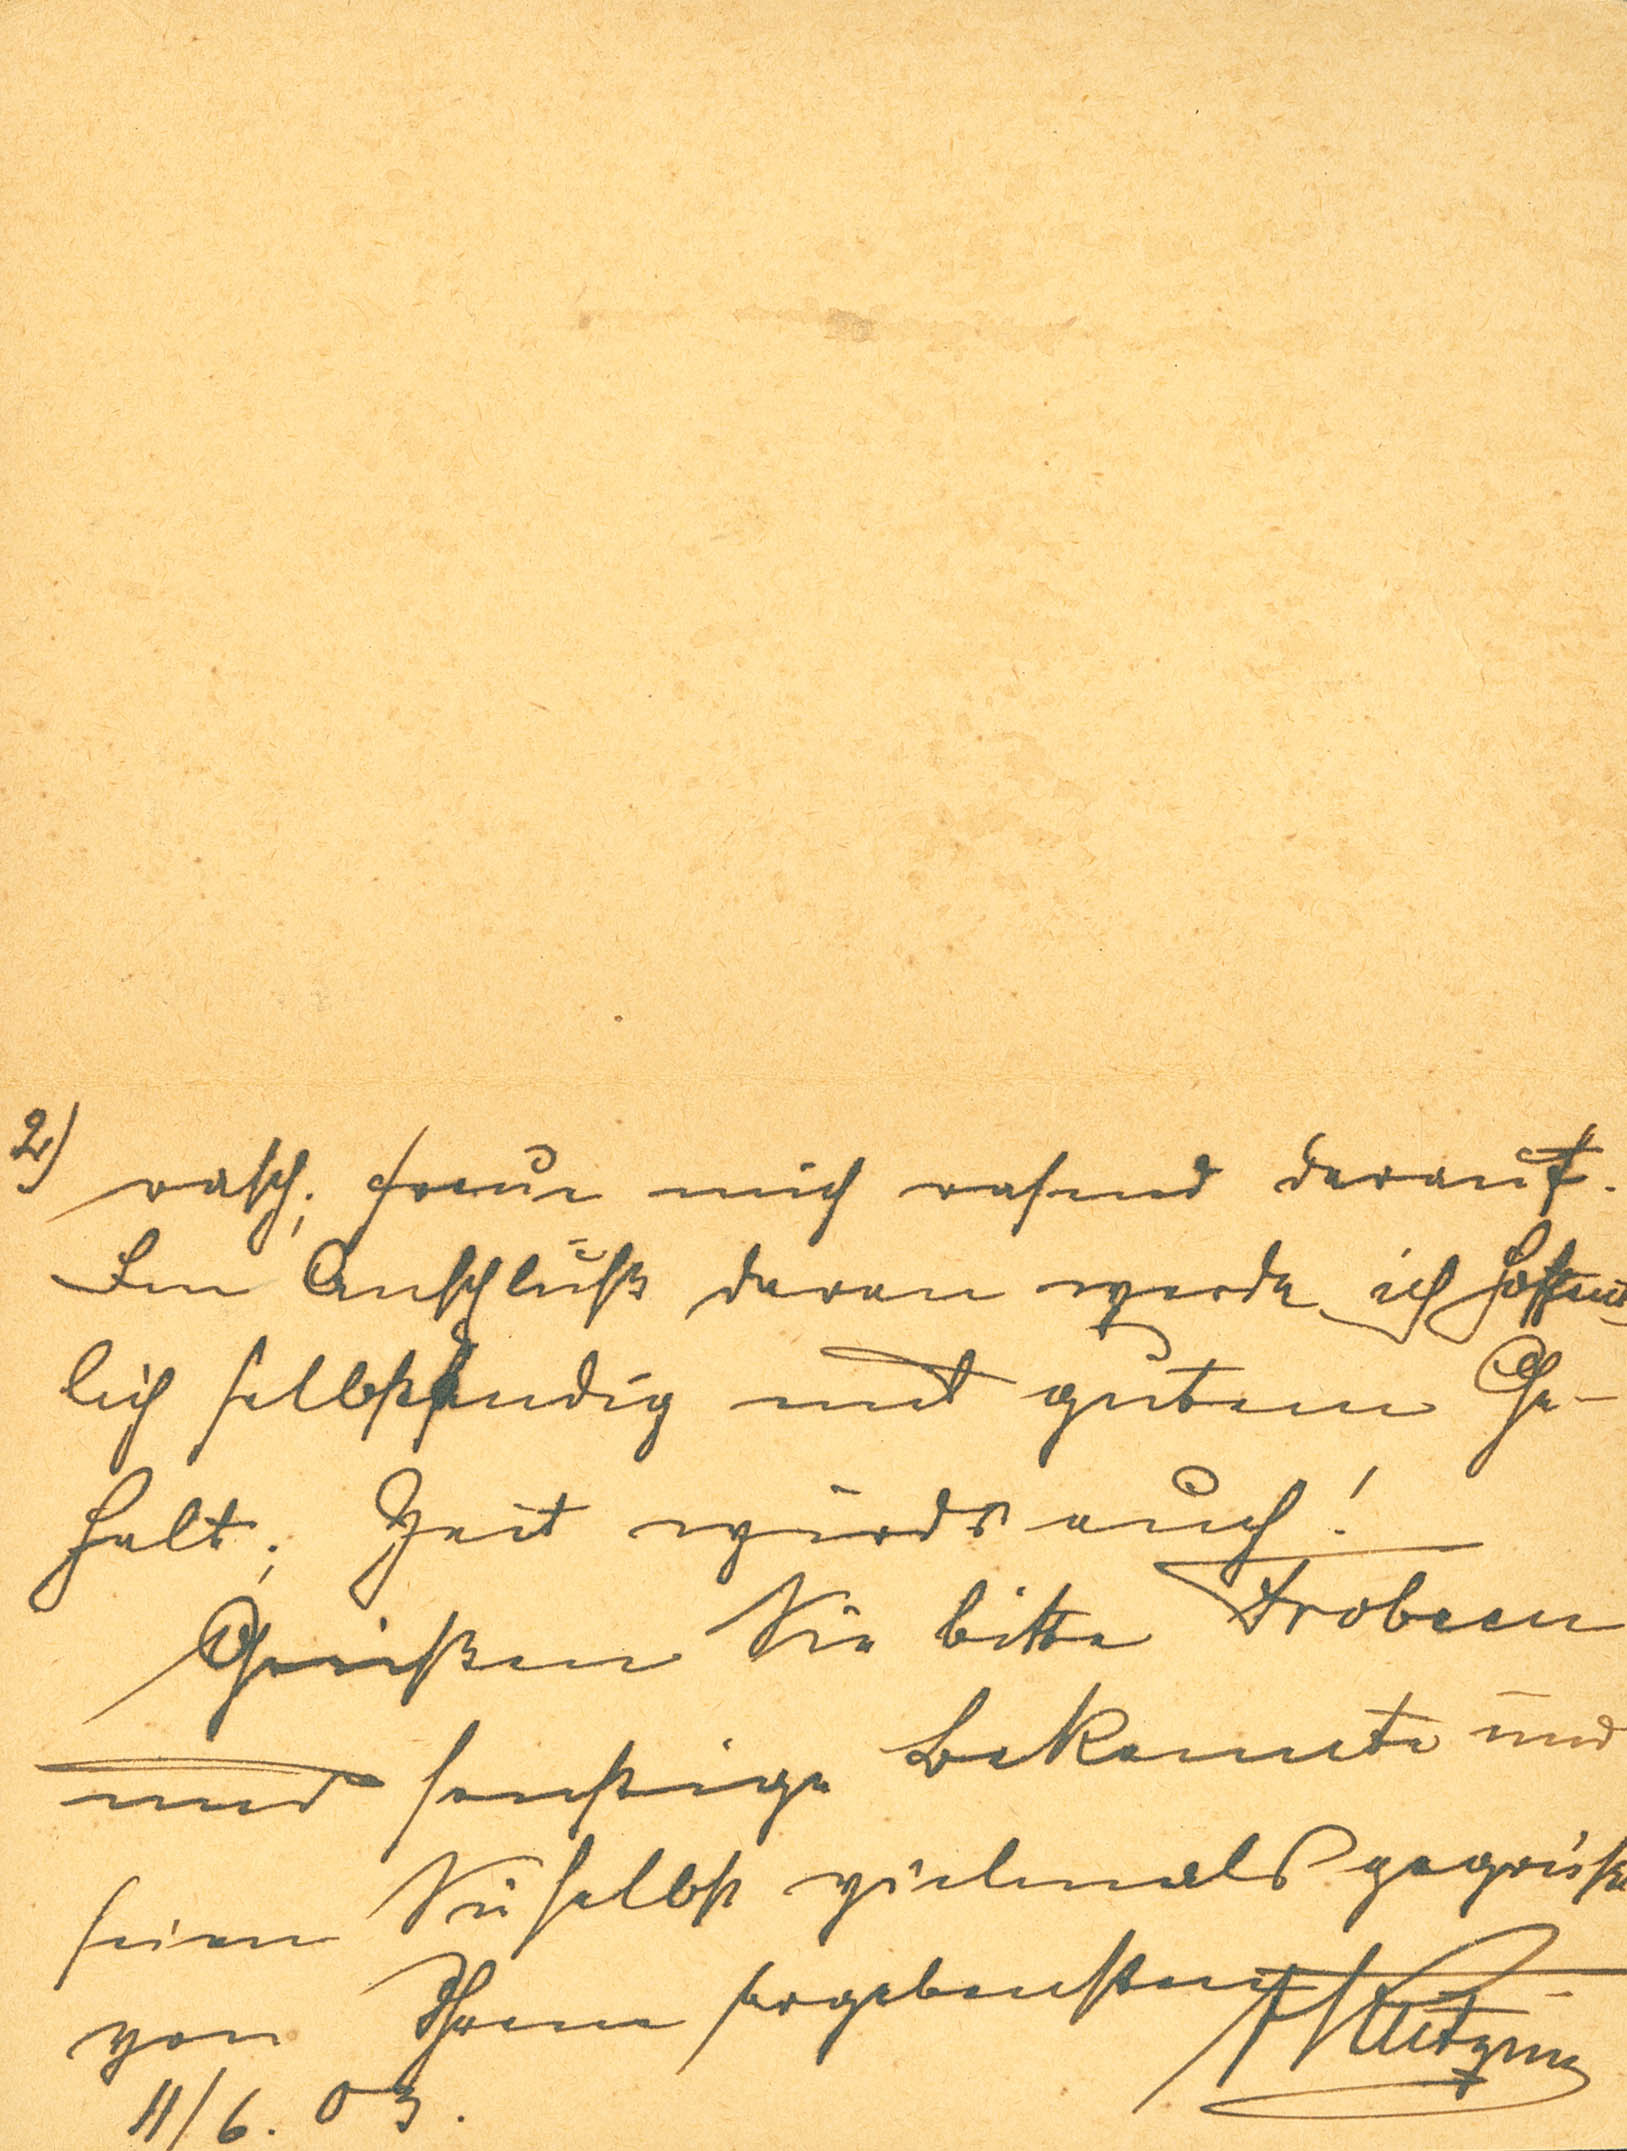 2) rasch; freue mich rasend darauf.
Im Anschluß daran werde ich hoffent
lich selbständig mit gutem Ge-
halt; Zeit wirds auch!
Grüßen Sie bitte Frobeen
und sonstige Bekannte und
seien Sie selbst vielmals gegrüßt
von Ihrem ergebensten
11/6. 03.